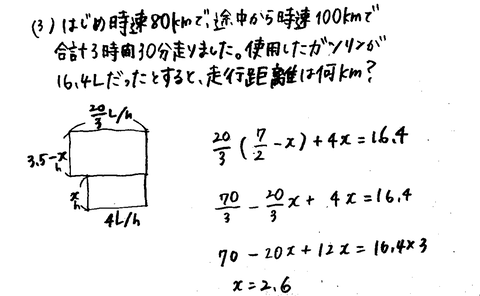 (3) はじめ時速80kmで、途中から時速100kmで
合計3時間30分走りました。使用したガソリンが
16.4Lだったとすると、走行距離は何km?
20/3 L/h
3.5-x
h
x
h
4L/h
20/3 (7/2 - x) + 4x = 16.4
70/3 - 20/3 x + 4x = 16.4
70 - 20x + 12x = 16.4×3
x = 2.6